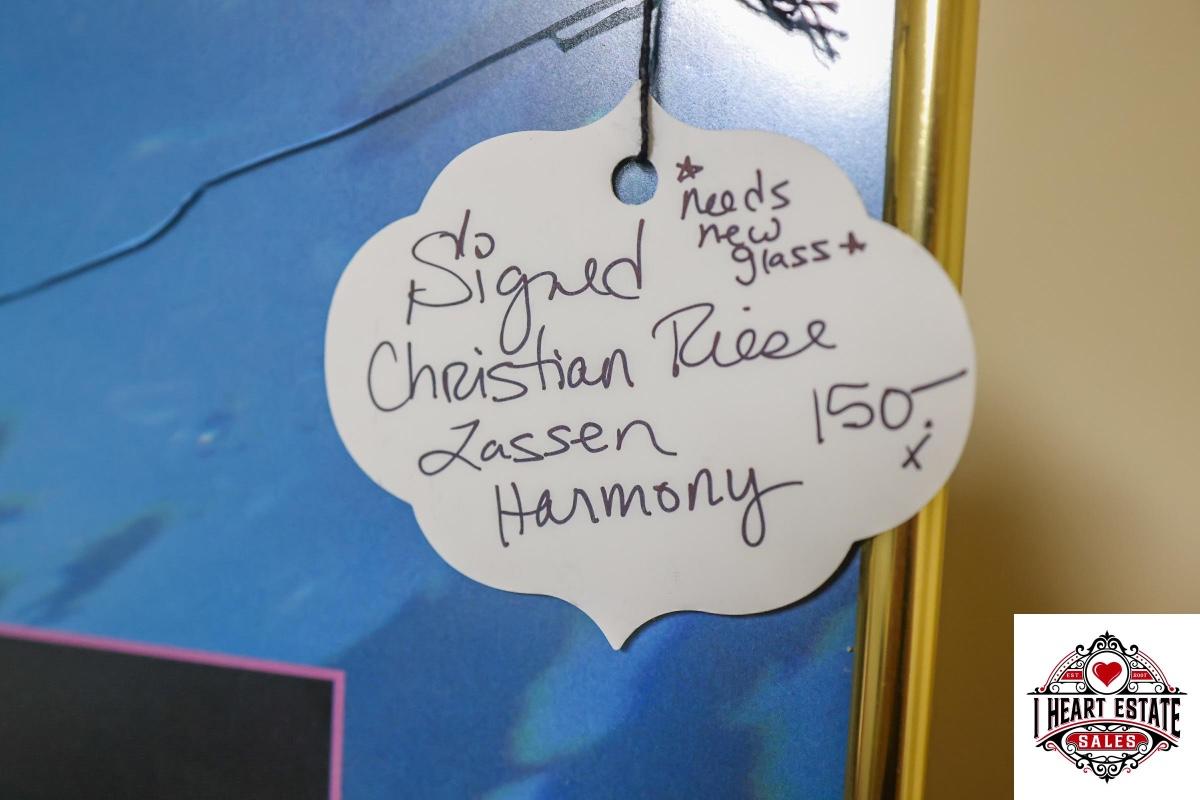 *needs
new
glass*
Signed
Christian Riese
Lassen
Harmony
150.-
x
EST 2007
I HEART ESTATE
SALES